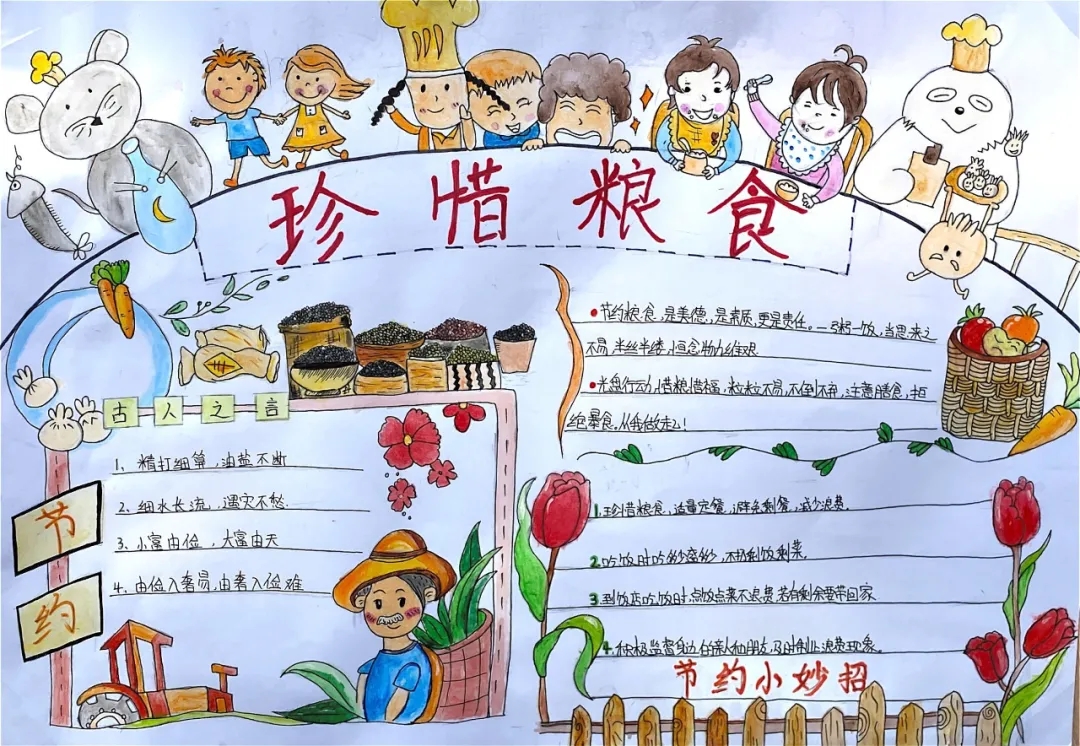 珍惜粮食
古人之言
节约
1、精打细算，油盐不断
2、细水长流，遇灾不愁.
3、小富由俭，大富由天
4、由俭入奢易，由奢入俭难
节约粮食，是美德，是素质，更是责任。一粥一饭，当思来之
不易，半丝半缕，恒念物力维艰
光盘行动，惜粮惜福，粒粒不易，不倒不弃，注意膳食，拒
绝暴食。从我做起！
1.珍惜粮食，适量定餐，避免剩餐，减少浪费。
2.吃饭时吃多少盛多少，不扔剩饭剩菜。
3.到饭店吃饭时，点饭点菜不浪费若有剩余要带回家
4.积极监督身边的亲人和朋友及时制止浪费现象。
节约小妙招